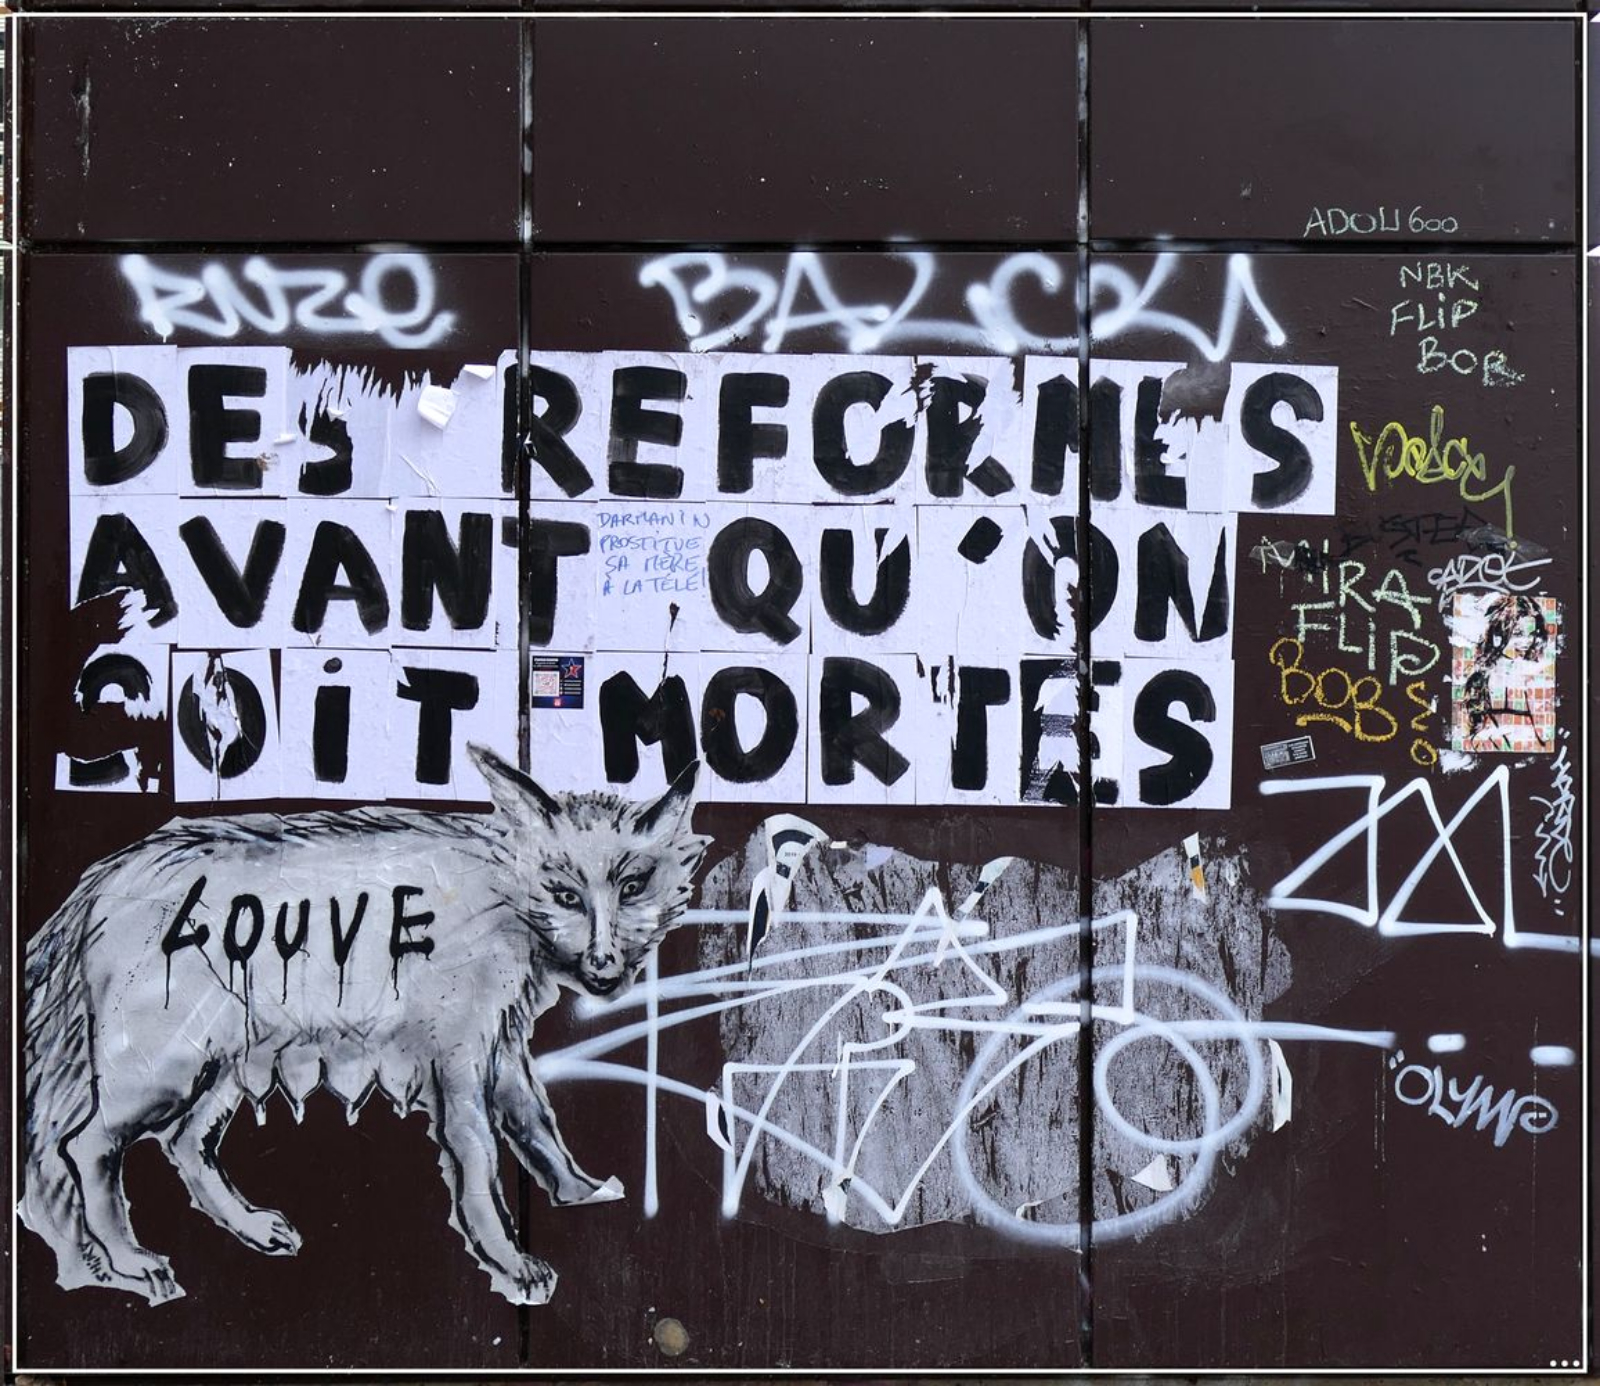 ADOU 600
NBK
FLiP
BOB
RNZE
BALCOU
DES REFORMES
AVANT QU'ON
SOiT MORTES
DARMANIN
PROSTITUE
SA MÈRE
À LA TÉLÉ!
IRA
FLiP
BOB
LOUVE
"OLYMP